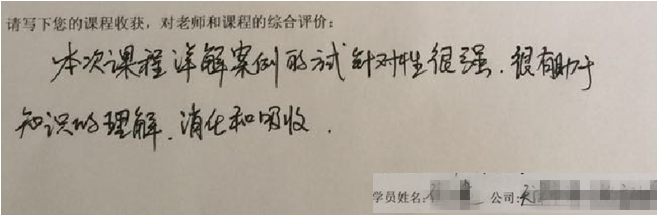 请写下您的课程收获，对老师和课程的综合评价：
本次课程详解案例的方式针对性很强，很有助于
知识的理解、消化和吸收．
学员姓名： 公司：